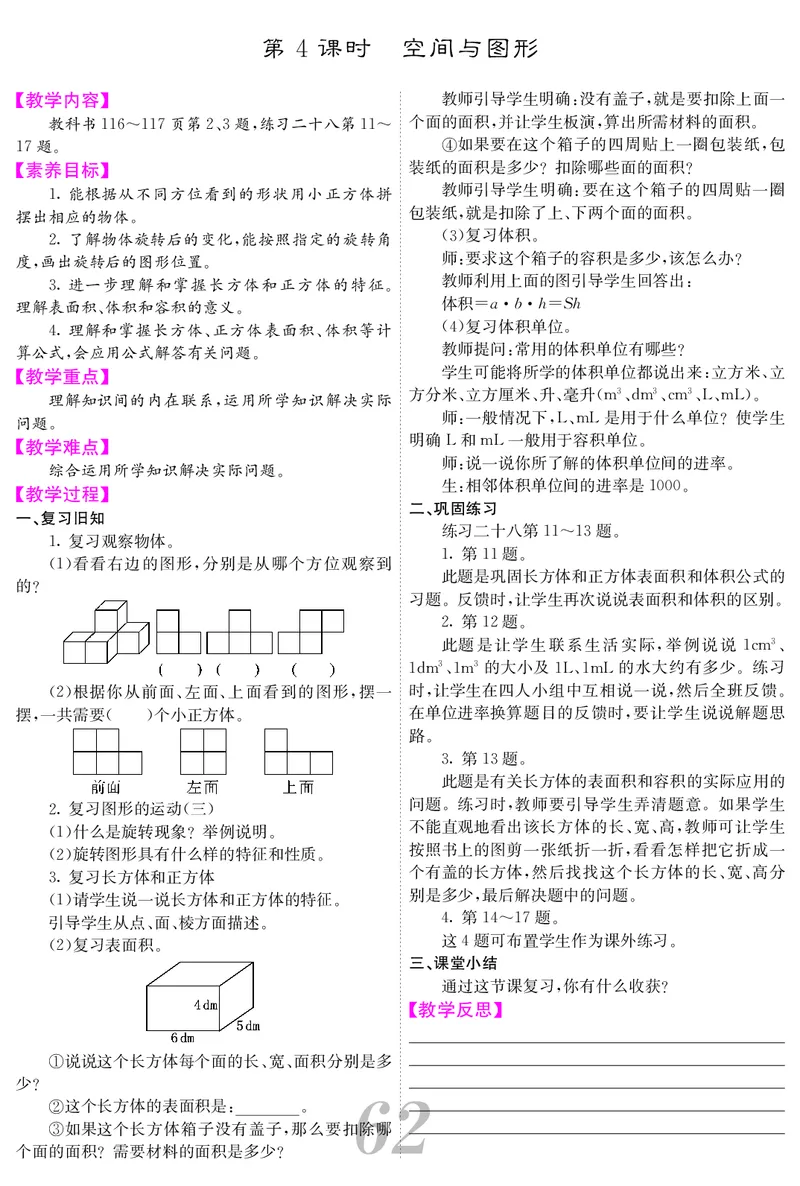 第 4 课时　空间与图形
【教学内容】
教科书 116～117 页第 2、3 题,练习二十八第 11～
17 题。
【素养目标】
1. 能根据从不同方位看到的形状用小正方体拼
摆出相应的物体。
2. 了解物体旋转后的变化,能按照指定的旋转角
度,画出旋转后的图形位置。
3. 进一步理解和掌握长方体和正方体的特征。
理解表面积、体积和容积的意义。
4. 理解和掌握长方体、正方体表面积、体积等计
算公式,会应用公式解答有关问题。
【教学重点】
理解知识间的内在联系,运用所学知识解决实际
问题。
【教学难点】
综合运用所学知识解决实际问题。
【教学过程】
一、复习旧知
1. 复习观察物体。
(1)看看右边的图形,分别是从哪个方位观察到
的?
(　　) (　　) (　　)
(2)根据你从前面、左面、上面看到的图形,摆一
摆,一共需要(　　)个小正方体。
前面　左面　上面
2. 复习图形的运动(三)
(1)什么是旋转现象? 举例说明。
(2)旋转图形具有什么样的特征和性质。
3. 复习长方体和正方体
(1)请学生说一说长方体和正方体的特征。
引导学生从点、面、棱方面描述。
(2)复习表面积。
4dm
5dm
6dm
①说说这个长方体每个面的长、宽、面积分别是多
少?
②这个长方体的表面积是:________。
③如果这个长方体箱子没有盖子,那么要扣除哪
个面的面积? 需要材料的面积是多少?
教师引导学生明确:没有盖子,就是要扣除上面一
个面的面积,并让学生板演,算出所需材料的面积。
④如果要在这个箱子的四周贴上一圈包装纸,包
装纸的面积是多少? 扣除哪些面的面积?
教师引导学生明确:要在这个箱子的四周贴一圈
包装纸,就是扣除了上、下两个面的面积。
(3)复习体积。
师:要求这个箱子的容积是多少,该怎么办?
教师利用上面的图引导学生回答出:
体积=a·b·h=Sh
(4)复习体积单位。
教师提问:常用的体积单位有哪些?
学生可能将所学的体积单位都说出来:立方米、立
方分米、立方厘米、升、毫升(m³、dm³、cm³、L、mL)。
师:一般情况下,L、mL 是用于什么单位? 使学生
明确 L 和 mL 一般用于容积单位。
师:说一说你所了解的体积单位间的进率。
生:相邻体积单位间的进率是 1000。
二、巩固练习
练习二十八第 11～13 题。
1. 第 11 题。
此题是巩固长方体和正方体表面积和体积公式的
习题。反馈时,让学生再次说说表面积和体积的区别。
2. 第 12 题。
此题是让学生联系生活实际,举例说说 1cm³、
1dm³、1m³ 的大小及 1L、1mL 的水大约有多少。练习
时,让学生在四人小组中互相说一说,然后全班反馈。
在单位进率换算题目的反馈时,要让学生说说解题思
路。
3. 第 13 题。
此题是有关长方体的表面积和容积的实际应用的
问题。练习时,教师要引导学生弄清题意。如果学生
不能直观地看出该长方体的长、宽、高,教师可让学生
按照书上的图剪一张纸折一折,看看怎样把它折成一
个有盖的长方体,然后找找这个长方体的长、宽、高分
别是多少,最后解决题中的问题。
4. 第 14～17 题。
这 4 题可布置学生作为课外练习。
三、课堂小结
通过这节课复习,你有什么收获?
【教学反思】
62